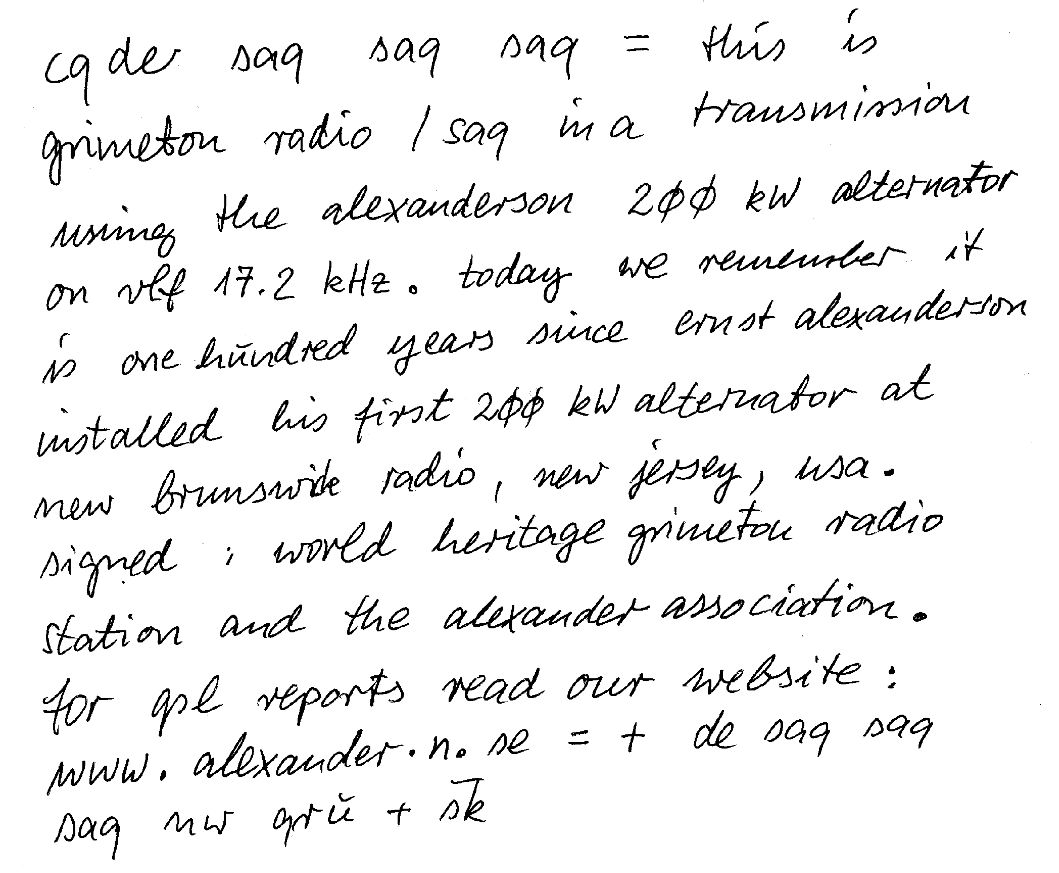 cq de saq saq saq = this is
grimeton radio / saq in a transmission
using the alexanderson 2øø kW alternator
on vlf 17.2 kHz. today we remember it
is one hundred years since ernst alexanderson
installed his first 2øø kW alternator at
new brunswick radio, new jersey, usa.
signed : world heritage grimeton radio
station and the alexander association.
for qsl reports read our website :
www. alexander.n. se = + de saq saq
saq nw qrŭ + s̅k̅